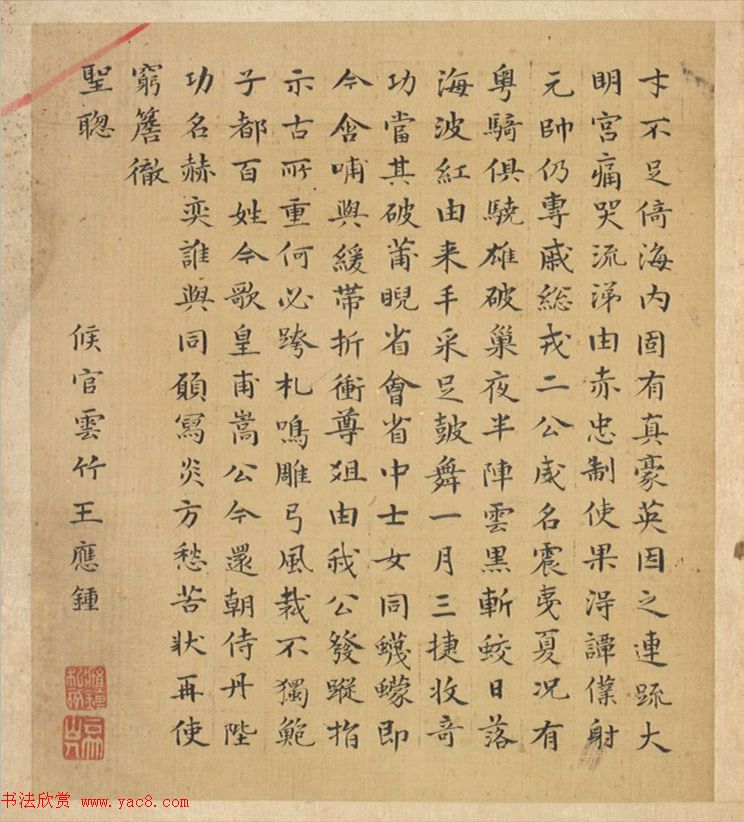 才不足倚海内固有真豪英因之連䟽大
明宮痛哭流涕由赤忠制使果得譚僕射
元帥仍專戚総戎二公威名震夷夏况有
粤騎俱驍雄破巢夜半陣雲黑斬蛟日落
海波紅由来手采足皷舞一月三捷收竒
功當其破莆睨省會省中士女同蠛蠓即
今含哺與緩帶折衝尊爼由我公發蹤指
示古所重何必跨札鳴雕弓風裁不獨鮑
子都百姓今歌皇甫嵩公今還朝侍丹陛
功名赫奕誰與同願寫炎方愁苦狀再使
窮簷徹
聖聰
候官雲竹王應鍾
书法欣赏 www.yac8.com